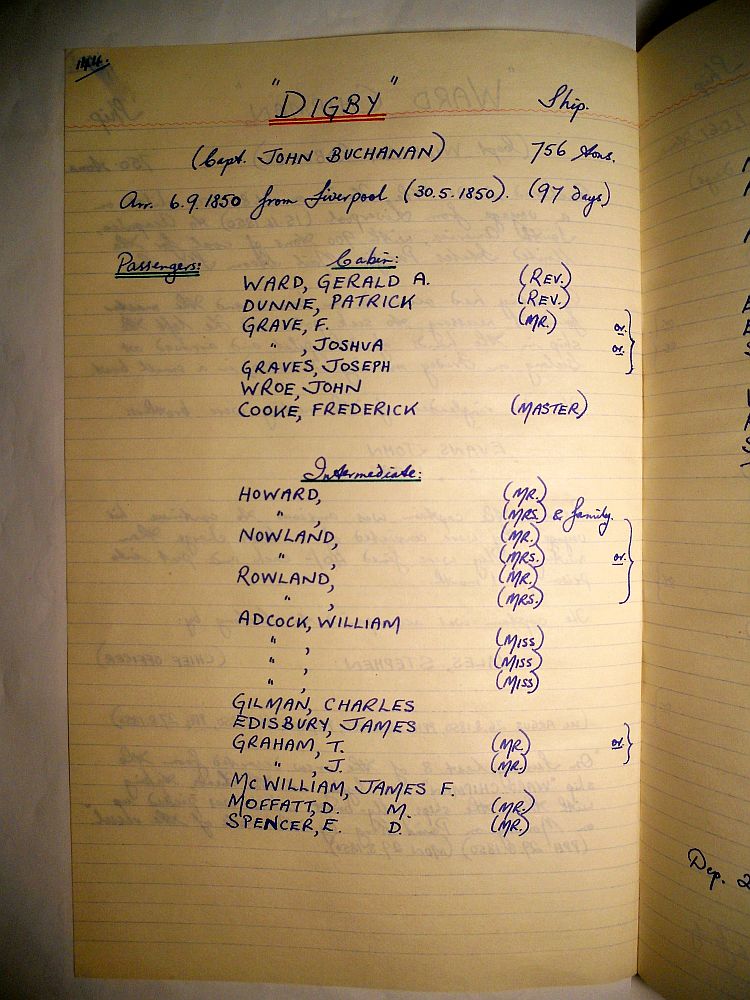 "DIGBY" Ship.
(Capt. JOHN BUCHANAN) 756 tons.
Arr. 6.9.1850 from Liverpool (30.5.1850). (97 days)
Passengers: Cabin:
WARD, GERALD A. (REV.)
DUNNE, PATRICK (REV.)
GRAVE, F. (MR.) or
" , JOSHUA or
GRAVES, JOSEPH
WROE, JOHN
COOKE, FREDERICK (MASTER)
Intermediate:
HOWARD, (MR.)
" , (MRS.) & family.
NOWLAND, (MR.)
" , (MRS.) or
ROWLAND, (MR.)
" , (MRS.)
ADCOCK, WILLIAM
" , (MISS)
" , (MISS)
" , (MISS)
GILMAN, CHARLES
EDISBURY, JAMES
GRAHAM, T. (MR.) or
" , J. (MR.)
McWILLIAM, JAMES F.
MOFFATT, D. M. (MR.)
SPENCER, E. D. (MR.)
Dep. 2